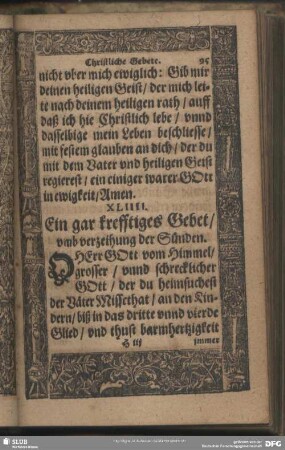 Christliche Gebete. 95
nicht vber mich ewiglich: Gib mir
deinen heiligen Geist / der mich lei-
te nach deinem heiligen rath / auff
daß ich hie Christlich lebe / vnnd
dasselbige mein Leben beschliesse /
mit festem glauben an dich / der du
mit dem Vater vnd heiligen Geist
regierest / ein einiger warer GOtt
in ewigkeit / Amen.
XLIIII.
Ein gar krefftiges Gebet /
vmb verzeihung der Sünden.
OHErr GOtt vom Himmel /
grosser / vnnd schrecklicher
GOtt / der du heimsuchest
der Väter Missethat / an den Kin-
dern / biß in das dritte vnnd vierde
Glied / vnd thust barmhertzigkeit
H iij immer
SLUB
DFG